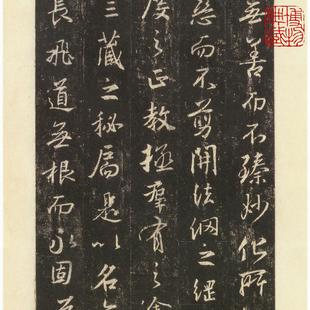 無善而不臻妙化所
惡而不翦開法網之綱
度之正教拯群有之塗
三藏之秘扃是以名無
長飛道無根而永固